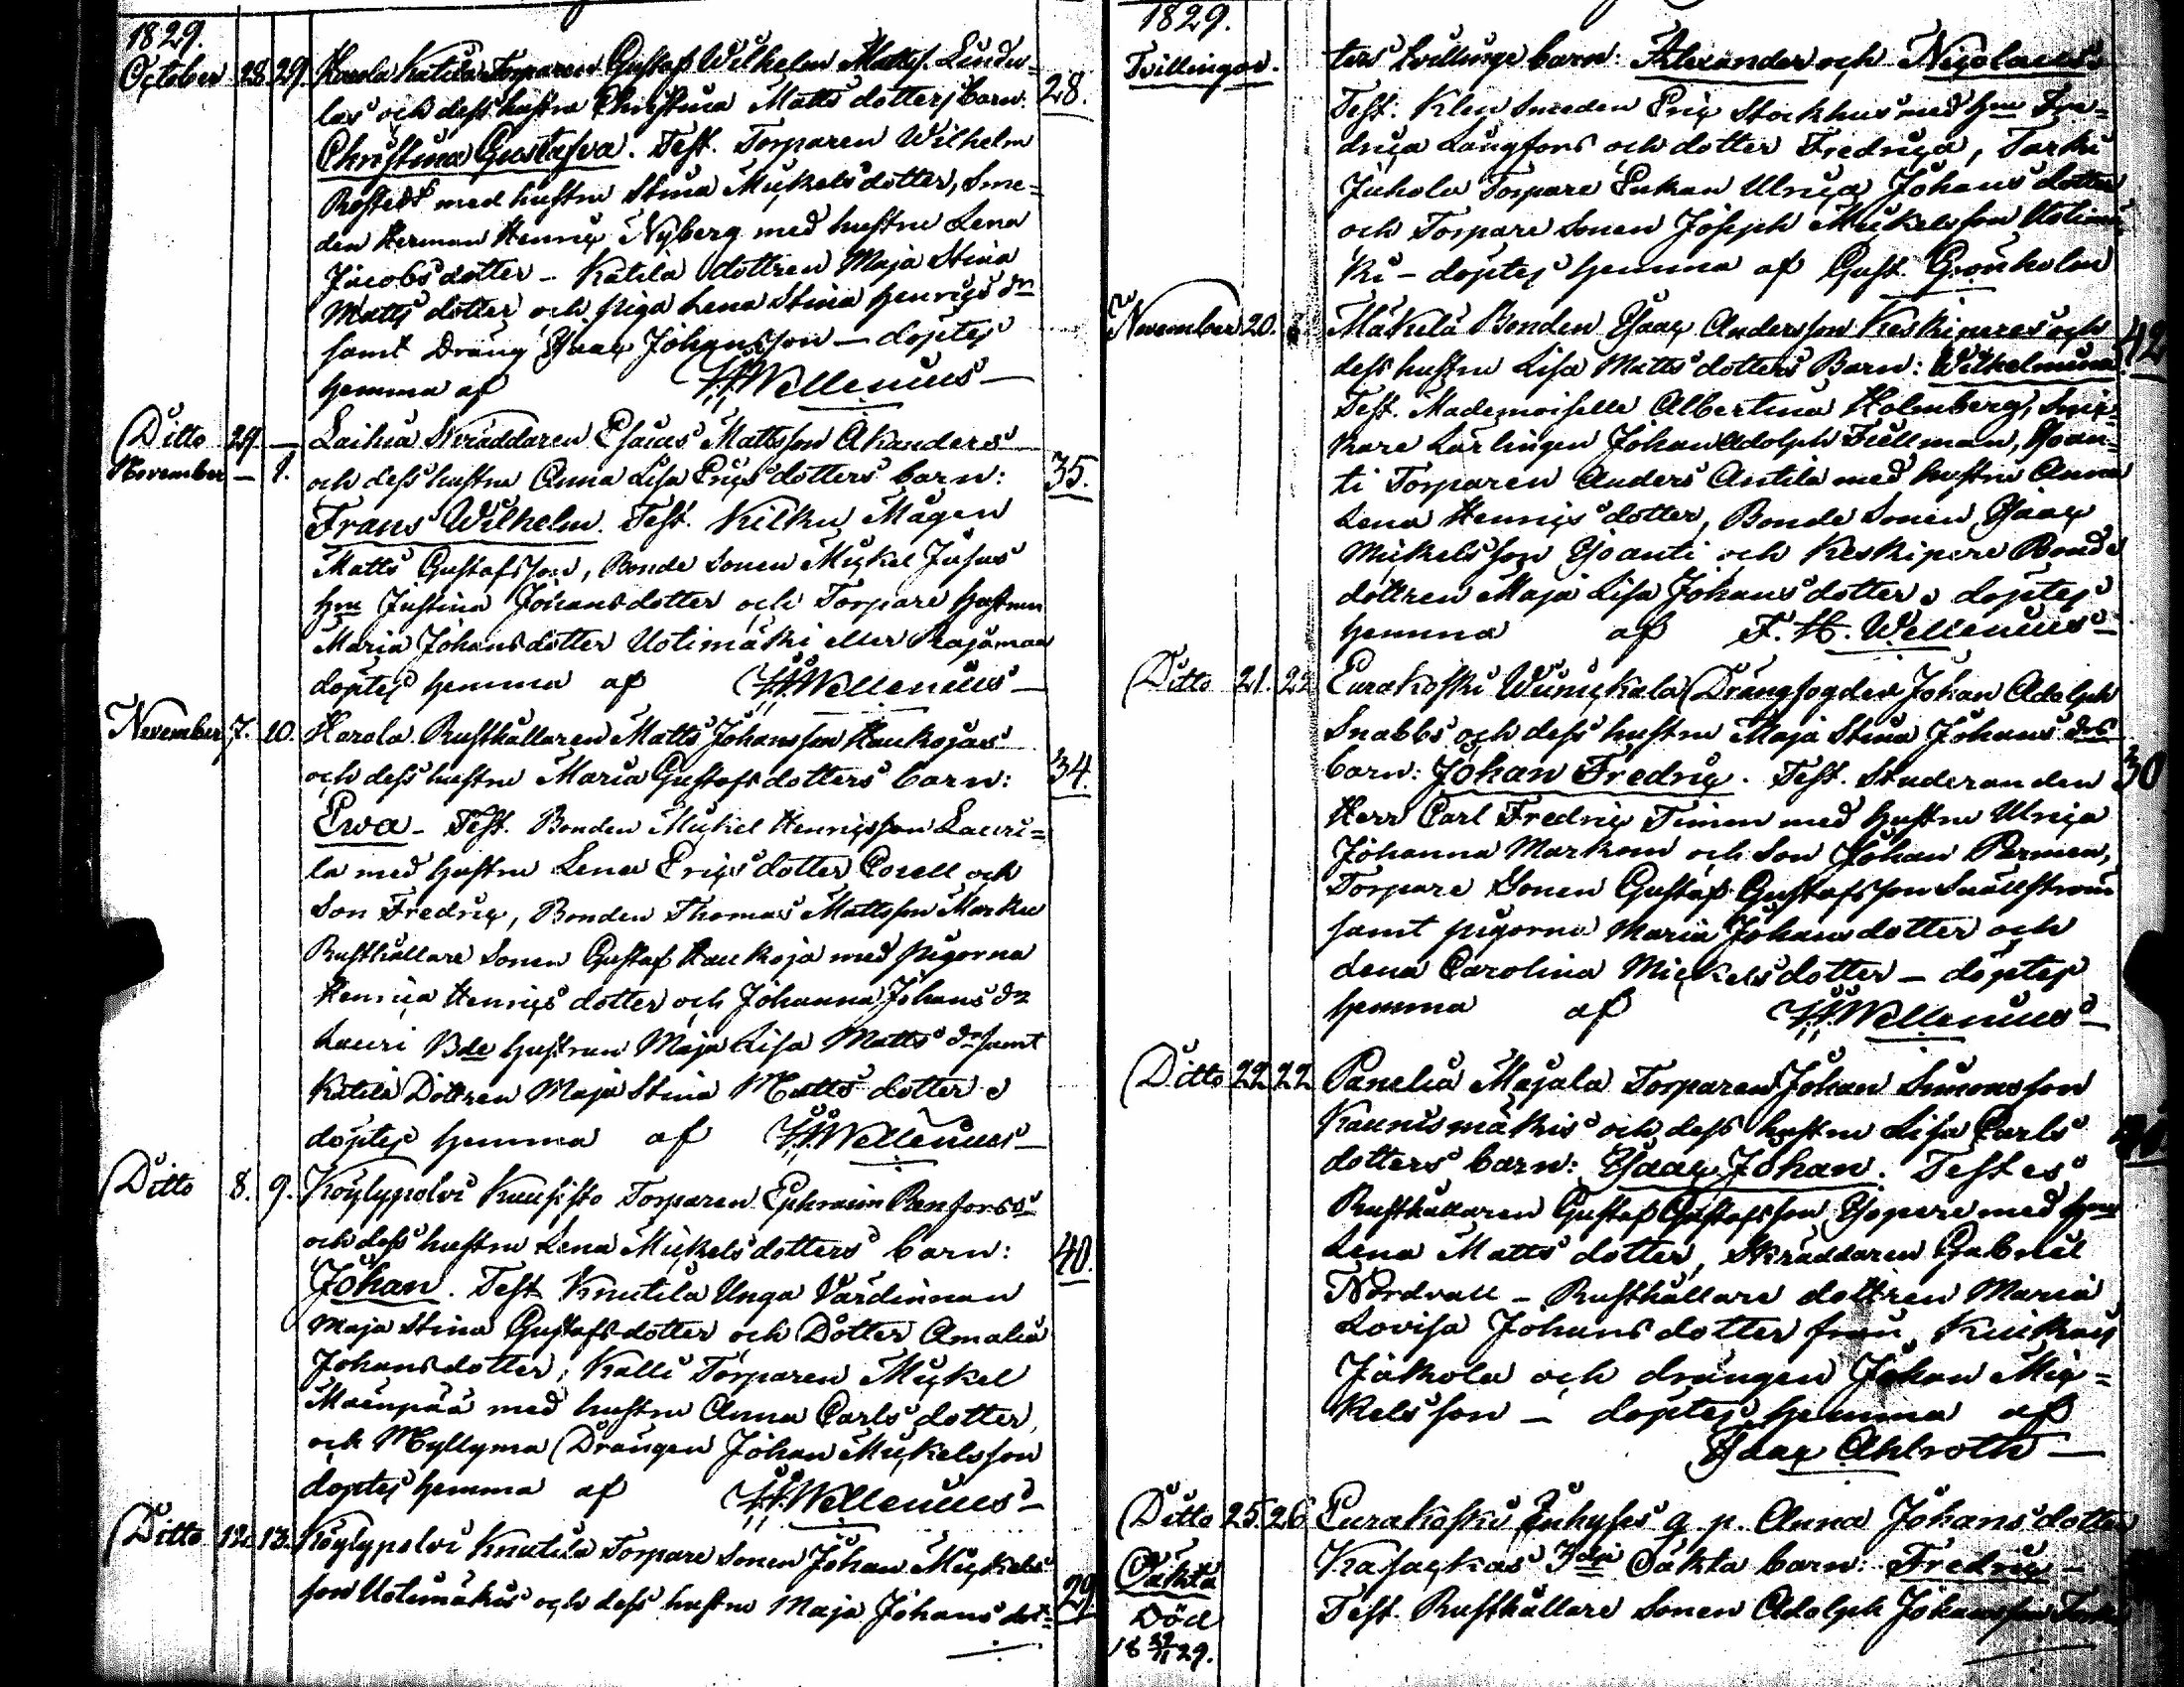 1829.
October 28. 29. Harola Katila Torparen Gustaf Wilhelm Matts. Lindu=
las och dess hustru Christina Matts dotters barn: 28.
Christina Gustafva. Test. Torparen Wilhelm
med hustru Stina Mickels dotter, Sme=
den Herman Henric Nyberg med hustru Lena
Jacobs dotter – Katila dottren Maja Stina
Matts dotter och piga Lena Stina Henrics dr
samt Dräng Isaac Johansson – döptes
hemma af FHWellenius –
Ditto 29. – Laihia Skräddaren Esaias Mattsson Akanders
November – 1. och dess hustru Anna Lisa Erics dotters barn: 35.
Frans Wilhelm. Test. Kilku Mågen
Matts Gustafsson, Bonde Sonen Mickel Jusus
hru Justina Johansdotter och Torpare hustrun
Maria Johansdotter Uotimäki eller Rajamaa
döptes hemma af FHWellenius –
November 7. 10. Harola Rusthållaren Matts Johansson Haukojas
och dess hustru Maria Gustafsdotters barn: 34.
Ewa – Test. Bonden Mickel Henricsson Lauri=
la med hustru Lena Erics dotter Corell och
Son Fredric, Bonden Thomas Mattsson Marku
Rusthållare Sonen Gustaf Haukoja med pigorna
Henrica Henrics dotter och Johanna Johans dr
Lauri Bde hustrun Maja Lisa Matts dr samt
Katila Dottren Maja Stina Matts dotter
döptes hemma af FHWellenius –
Ditto 8. 9. Köylypolvi Kuusisto Torparen Ephraim Renfors
och dess hustru Lena Mickels dotters barn: 40.
Johan. Test. Knutila Unga Värdinnan
Maja Stina Gustafsdotter och Dotter Amalia
Johansdotter, Kalli Torparen Mickel
Mäenpää med hustru Anna Carls dotter,
och Myllymaa Drängen Johan Mickelsson
döptes hemma af FHWellenius –
Ditto 12. 13. Köylypolvi Knutila Torpare Sonen Johan Mickels
son Uotimäkis och dess hustru Maja Johans dot= 29.
1829.
Tvillingar. ters tvillinge barn: Alexander och Nicolaus.
Test. Klensmeden Eric Stockhus med hru Fre=
drica Långfors och dotter Fredrica, Tarku
Juhola Torpare Enkan Ulrica Johans dotter
och Torpare Sonen Joseph Mickelsson Uotimä
ki – döptes hemma af Gust. Grönholm
November 20. Mäkelä Bonden Isaac Andersson Keskiperes och
dess hustru Lisa Matts dotters Barn: Wilhelmina 42
Test. Mademoiselle Albertina Holmberg, Snic=
kare Lärlingen Johan Adolph Fiellman, Isoan=
ti Torparen Anders Antila med hustru Anna
Lena Henrics dotter, Bonde Sonen Isaac
Mickelsson Isoanti och Keskipere Bonde
dottren Maja Lisa Johans dotter döptes
hemma af F. H. Wellenius –
Ditto 21. 22 Eurakoski Wunickala Drängfogden Johan Adolph
Snabbs och dess hustru Maja Stina Johans drs
barn: Johan Fredric. Test. Studeranden 30
Herr Carl Fredric Timen med hustru Ulrica
Johanna Markeen och Son Johan Parmen,
Torpare Sonen Gustaf Gustafsson Snällström
samt pigorna Maria Johans dotter och
Lena Carolina Mickelsdotter – döptes
hemma af FHWellenius –
Ditto 22 22 Panelia Majala Torparen Johan Simonsson
Kaunismäkis och dess hustru Lisa Carls
dotters barn: Isaac Johan. Testes
Rusthållaren Gustaf Gustafsson Isopere med hru
Lena Matts dotter, Skräddaren Gabriel
Nordvall – Rusthållare dottren Maria
Lovisa Johans dotter från Kiukais
Jäkola och drängen Johan Mic=
kelsson – döptes hemma af
Isaac Ahlroth –
Ditto 25. 26 Eurakoski q. p. Anna Johans dotter
Oäkta Kasackas 3dje Oäkta barn: Fredric –
Död Test. Rusthållare Sonen Adolph Johansson
18 29.